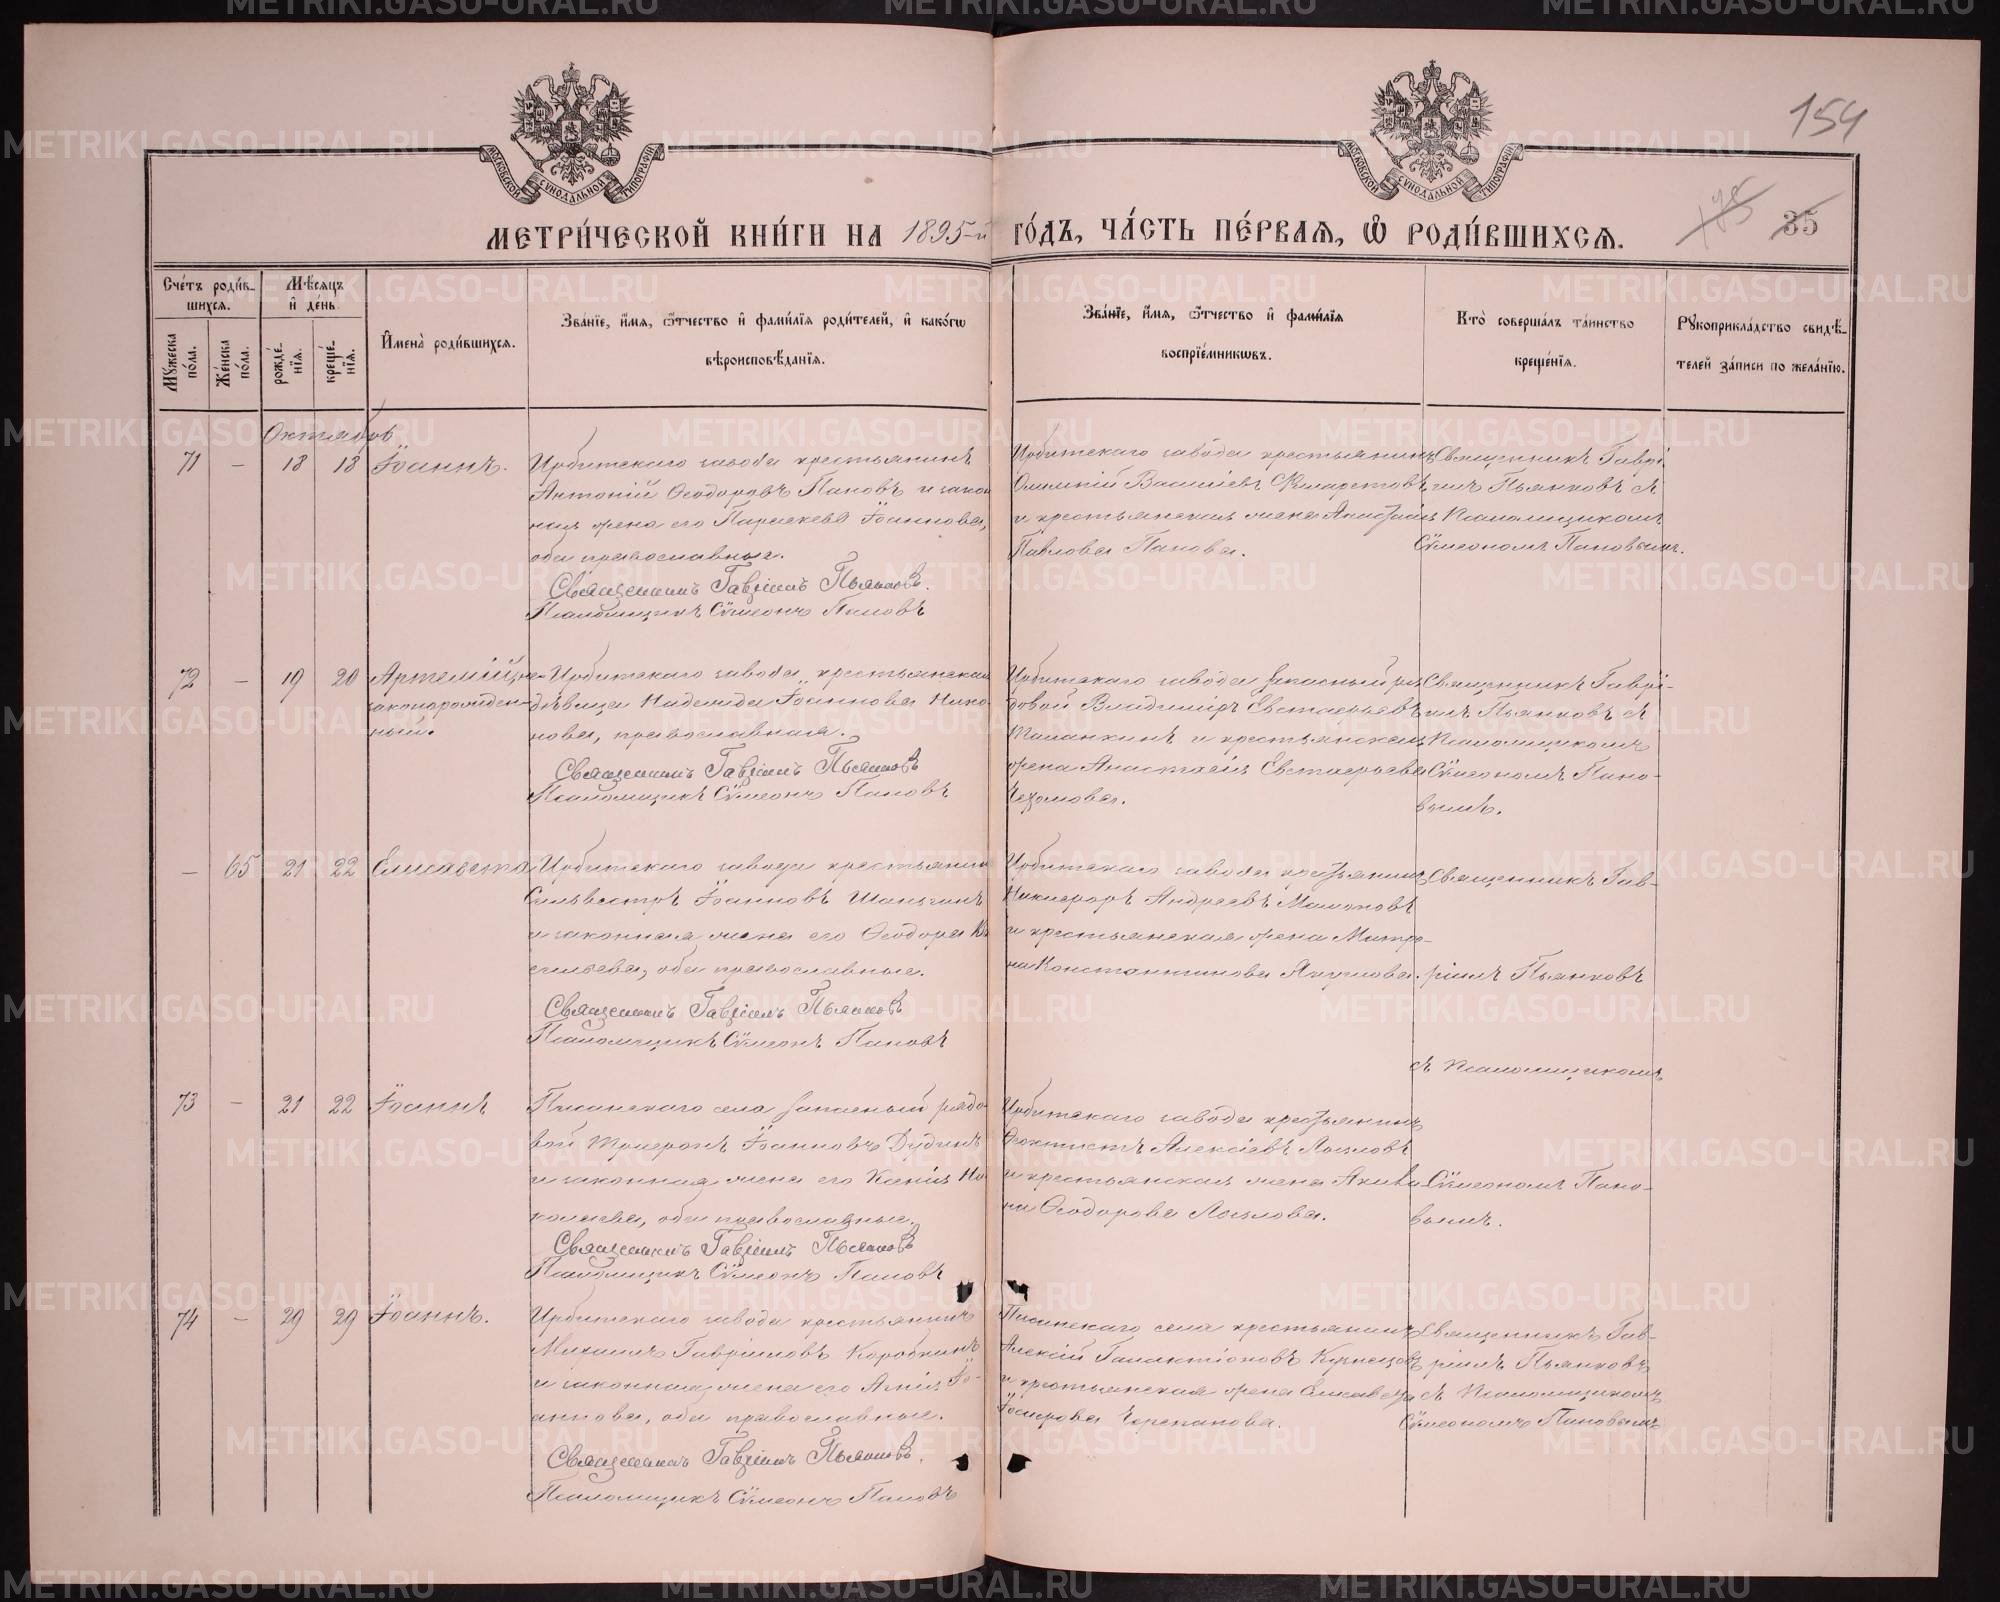 154
175
35
МОСКОВСКОЙ СѴНОДАЛЬНОЙ ТИПОГРАФІИ
МОСКОВСКОЙ СѴНОДАЛЬНОЙ ТИПОГРАФІИ
МЕТРИ́ЧЕСКОЙ КНИ́ГИ НА 1895-й ГО́ДЪ, ЧА́СТЬ ПЕ́РВАЯ, Ѡ РОДИ́ВШИХСЯ.
Сче́тъ роди́в-
шихся.
Мꙋжеска по́ла.
Же́нска по́ла.
Мѣ́сяцъ
и де́нь.
рожде́-
нїя.
креще́-
нїя.
Имена̀ роди́вшихся.
Зва́нїе, и́мя, ѻ́тчество и фами́лїя роди́телей, и како́гѡ
вѣроисповѣ́данїя.
Зва́нїе, и́мя, ѻ́тчество и фами́лїя
воспрїе́мникѡвъ.
Кто̀ соверша́лъ та́инство
креще́нїя.
Рꙋкоприкла́дство свидѣ́-
телей за́писи по жела́нїю.
Октябрь
71 – 18 18 Іоаннъ.
Ирбитскаго завода крестьянинъ
Антоній Ѳеодоровъ Пановъ и закон
ная жена его Параскева Іоаннова,
оба православные.
Священникъ Гавріилъ Пьянковъ.
Псаломщикъ Сѵмеонъ Пановъ
Ирбитскаго завода крестьянинъ
Олимпій Василіевъ Филаретовъ
и крестьянская жена Анастасія
Павлова Панова.
Священникъ Гаврі-
илъ Пьянковъ съ
псаломщикомъ
Сѵмеономъ Пановымъ.
72 – 19 20 Артемій, не-
законорожден-
ный.
Ирбитскаго завода крестьянская
дѣвица Надежда Іоаннова Нико-
нова, православная.
Священникъ Гавріилъ Пьянковъ
Псаломщикъ Сѵмеонъ Пановъ
Ирбитскаго завода запасный ря
довой Владиміръ Евстафьевъ
Таланкинъ и крестьянская
жена Анастасія Евстафьева
Чезомова.
Священникъ Гаврі-
илъ Пьянковъ съ
псаломщикомъ
Сѵмеономъ Пано-
вымъ.
– 65 21 22 Елисавета
Ирбитскаго завода крестьянин
Сильвестръ Іоанновъ Шаньгинъ
и законная жена его Ѳеодора Ва
сильева, оба православные.
Священникъ Гавріилъ Пьянковъ
Псаломщикъ Сѵмеонъ Пановъ
Ирбитскаго завода крестьянинъ
Никифоръ Андреевъ Мамоновъ
и крестьянская жена Матре-
на Константинова Якурнова.
Священникъ Гав-
ріилъ Пьянковъ
съ псаломщикомъ
73 – 21 22 Іоаннъ
Писанскаго села запасный рядо
вой Трифонъ Іоанновъ Дудинъ
и законная жена его Ксенія Ни
колаева, оба православные.
Священникъ Гавріилъ Пьянковъ
Псаломщикъ Сѵмеонъ Пановъ
Ирбитскаго завода крестьянинъ
Ѳеоктистъ Алексіевъ Лозловъ
и крестьянская жена Акили-
на Ѳеодорова Лозлова.
Сѵмеономъ Пано-
вымъ.
74 – 29 29 Іоаннъ.
Ирбитскаго завода крестьянинъ
Михаилъ Гавріиловъ Коробкинъ
и законная жена его Агнія Іо-
аннова, оба православные.
Священникъ Гавріилъ Пьянковъ.
Псаломщикъ Сѵмеонъ Пановъ
Писанскаго села крестьянинъ
Алексій Галактіоновъ Кузнецовъ
и крестьянская жена Елисавета
Іосифова Черепанова.
Священникъ Гав-
ріилъ Пьянковъ
съ псаломщикомъ
Сѵмеономъ Пановымъ
METRIKI.GASO-URAL.RU